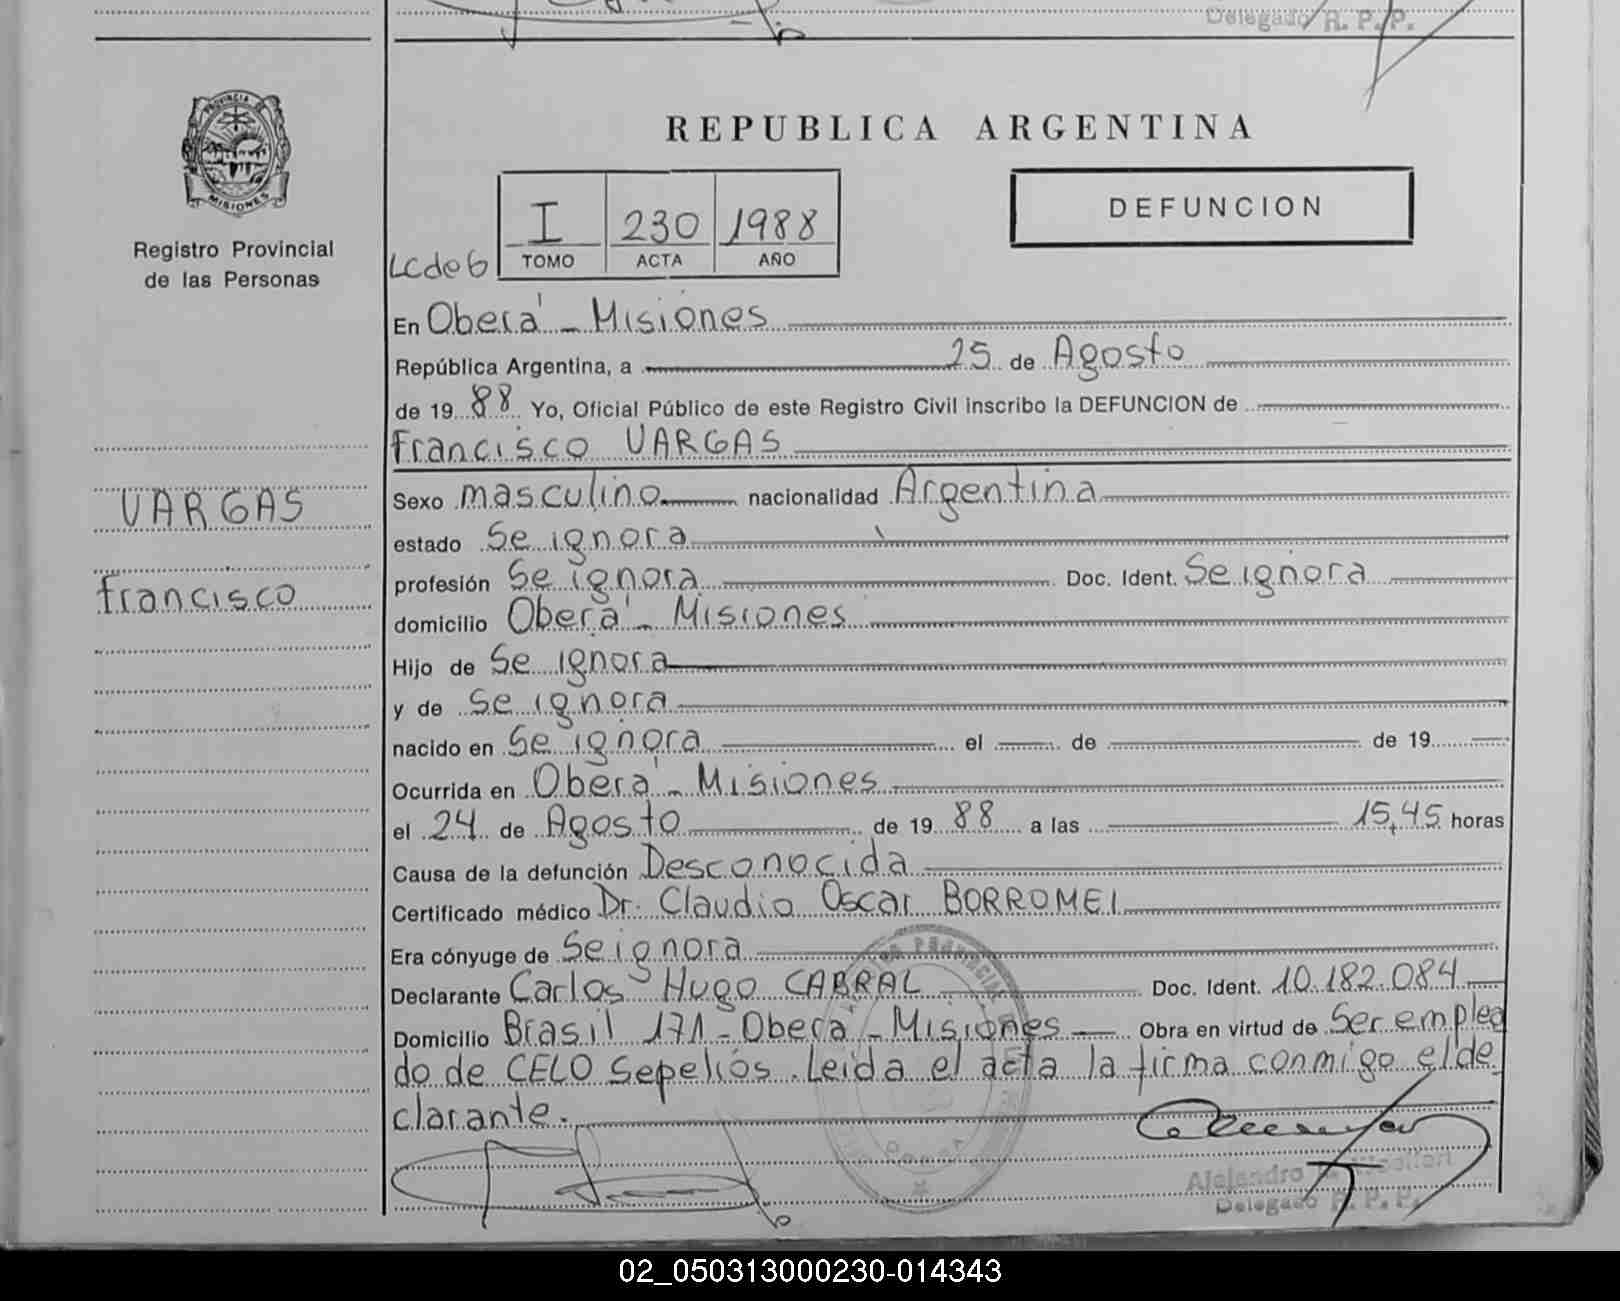 Delegado R. P. P.
PROVINCIA DE
MISIONES
Registro Provincial
de las Personas
REPUBLICA ARGENTINA
I 230 1988
TOMO ACTA AÑO
Lcde6
DEFUNCION
En Oberá - Misiones
República Argentina, a 25 de Agosto
de 19 88 Yo, Oficial Público de este Registro Civil inscribo la DEFUNCION de
francisco VARGAS
VARGAS
francisco
Sexo masculino nacionalidad Argentina
estado Se ignora
profesión Se ignora Doc. Ident. Se ignora
domicilio Oberá - Misiones
Hijo de Se ignora
y de Se ignora
nacido en Se ignora el de de 19
Ocurrida en Oberá - Misiones
el 24 de Agosto de 19 88 a las 15,45 horas
Causa de la defunción Desconocida
Certificado médico Dr. Claudio Oscar BORROMEI
Era cónyuge de Se ignora
Declarante Carlos Hugo CABRAL Doc. Ident. 10.182.084
Domicilio Brasil 171 - Obera - Misiones Obra en virtud de Ser emplea
do de CELO Sepelios. Leida el acta la firma conmigo el de
clarante.
Alejandro
Delegado R. P. P.
02_050313000230-014343